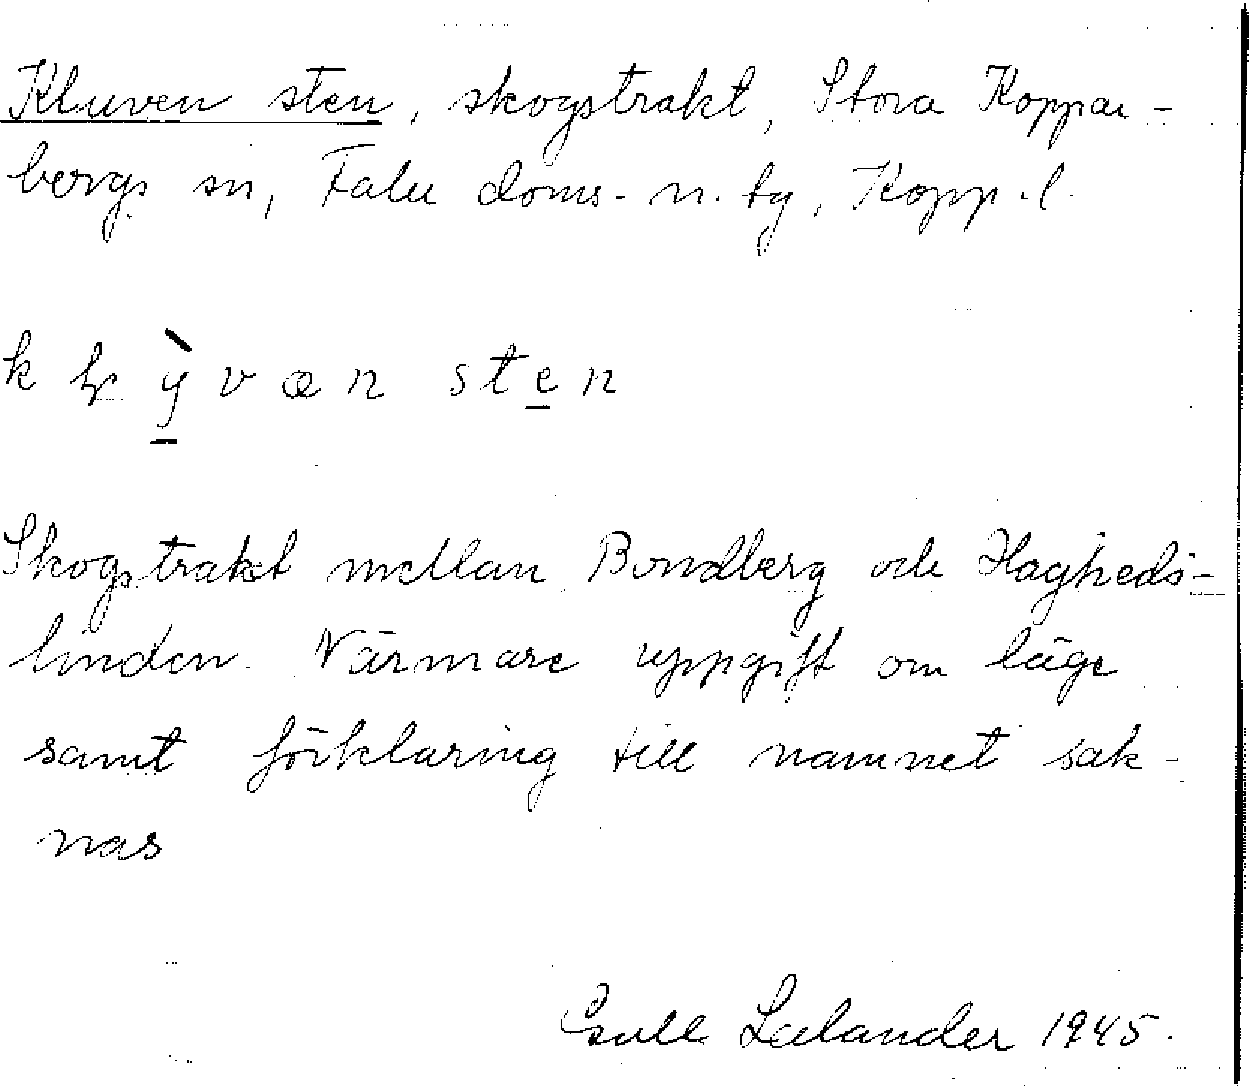 Kluven sten, skogstrakt, Stora Koppar-
bergs sn, Falu doms. n. tg, Kopp. l.
sten
Skogstrakt mellan Bondberg och Hagheds-
linden. Närmare uppgift om läge
samt förklaring till namnet sak-
nas
Gull Lælander 1945.